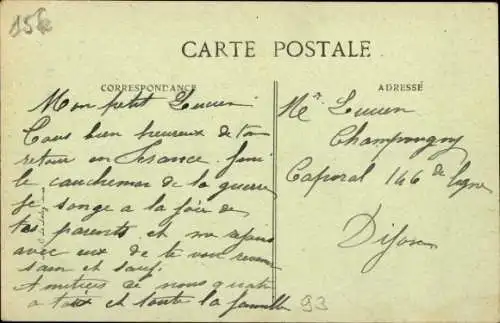 15k
CARTE POSTALE
CORRESPONDANCE
Mon petit Lucien
Tous bien heureux de ton
retour en France. fini
le cauchemar de la guerre
je songe a la joie de
tes parents et me rejouis
avec eux de te voir revenu
sain et sauf.
Amities de nous quatre
a toi et toute la famille
ADRESSÉ
Mr Lucien
Champougny
Caporal 146 de ligne
Dijon
93